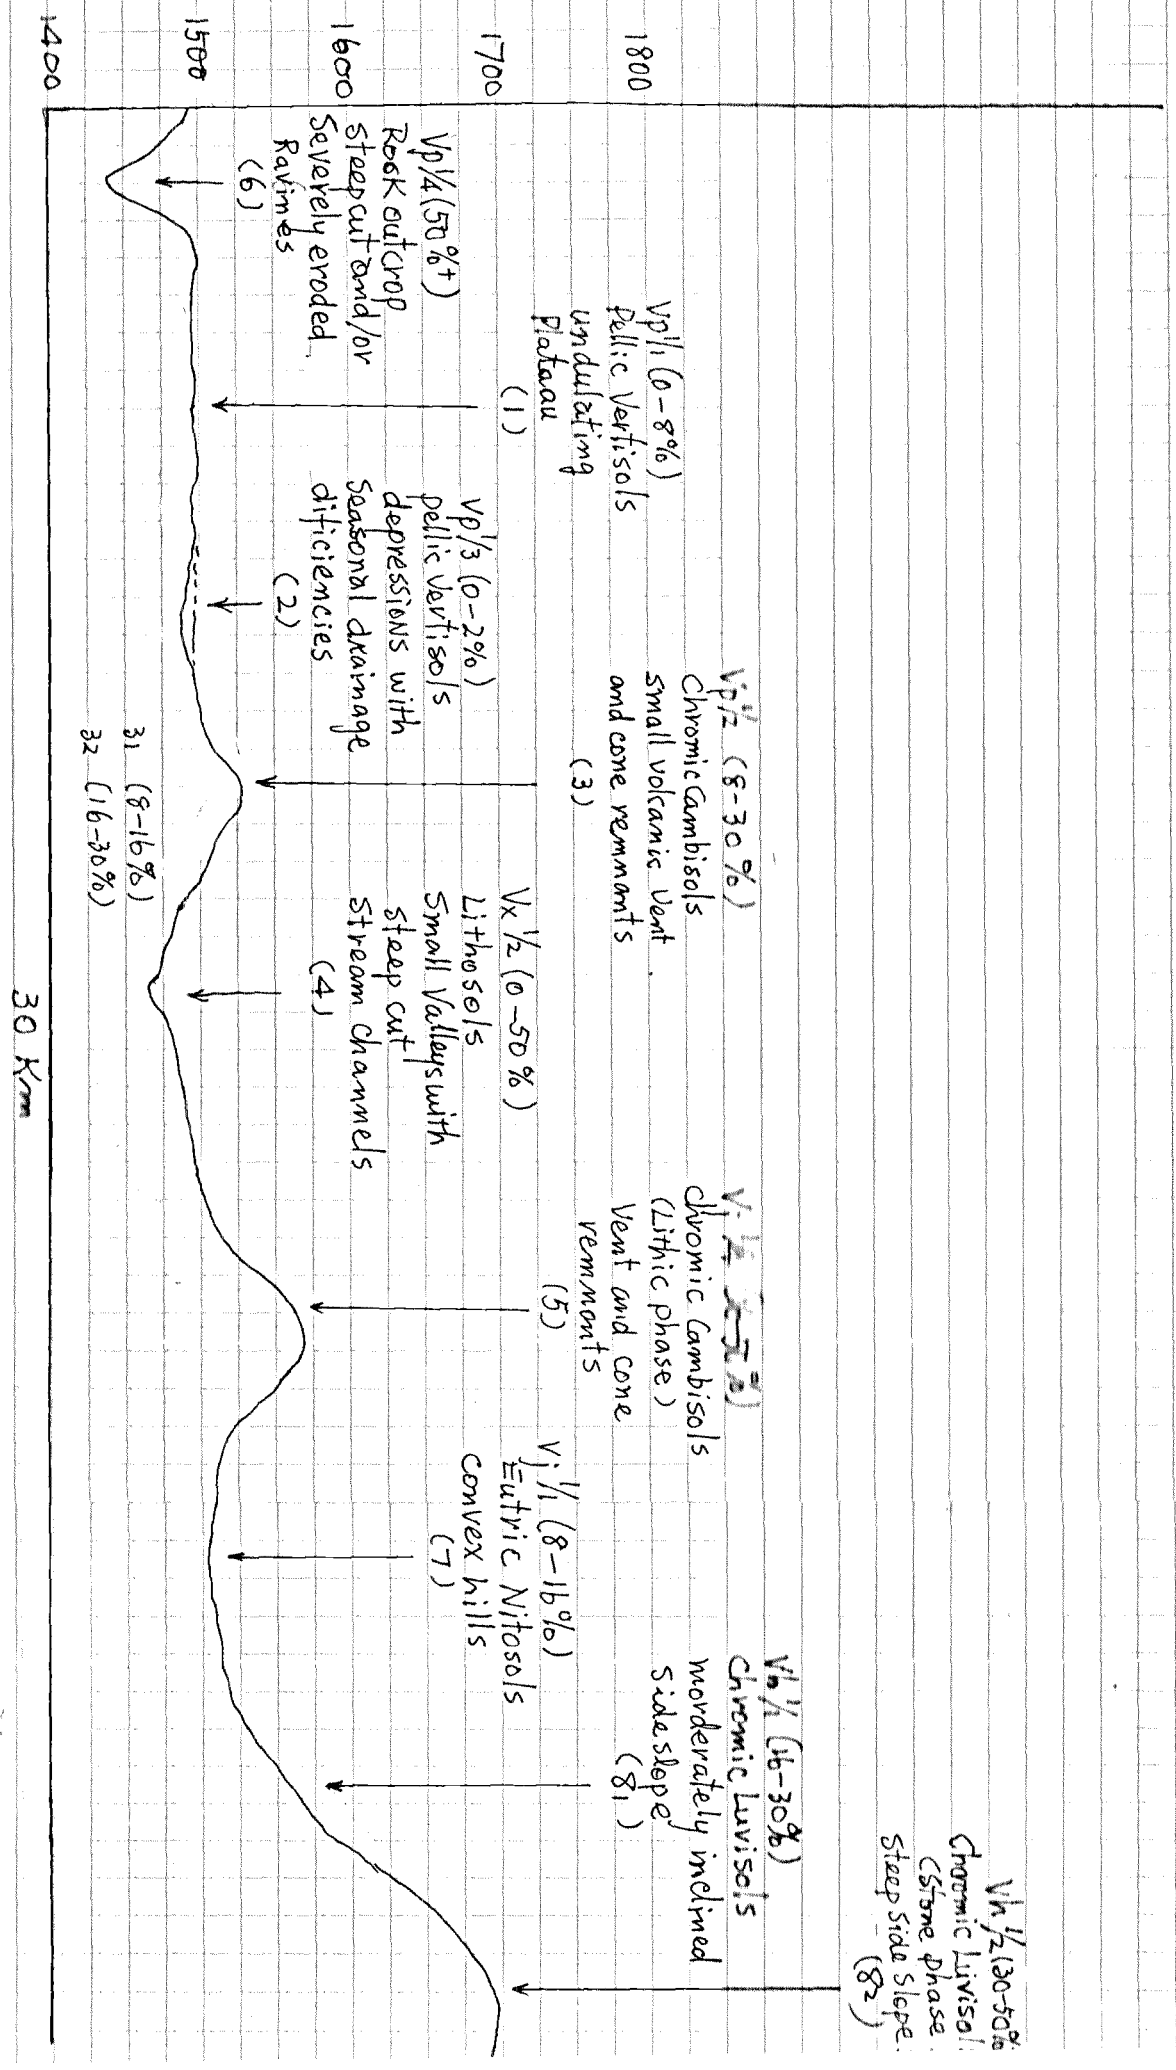 1800
1700
1600
1500
1400
Vp1/4 (50%+)
Rook outcrop
steep cut and/or
Severely eroded
Ravines
(6)
Vp1/1 (0-8%)
Pellic Vertisols
undulating
Plataau
(1)
Vp1/3 (0-2%)
pellic Vertisols
depressions with
Seasonal drainage
dificiencies
(2)
Vp1/2 (8-30%)
Chromic Cambisols
small volcanic Vent
and cone remnants
(3)
3₁ (8-16%)
3₂ (16-30%)
Vx 1/2 (0-50%)
Lithosols
Small Valleys with
steep cut
stream channels
(4)
chromic Cambisols
(Lithic phase)
Vent and cone
remnants
(5)
Vj 1/1 (8-16%)
Eutric Nitosols
convex hills
(7)
Vh 1/1 (16-30%)
Chromic Luvisols
morderately inclined
Side slope
(8₁)
Vh 1/2 (30-50%
Chromic Luvisol
(Stone phase
Steep Side Slope
(8₂)
30 Km